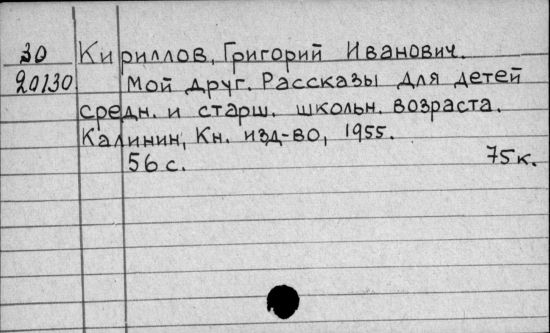 30 Кириллов, Григорий Иванович.
20130 Мой друг. Рассказы для детей
средн. и старш. школьн. возраста.
Калинин, Кн. изд-во, 1955.
56 с. 75 к.